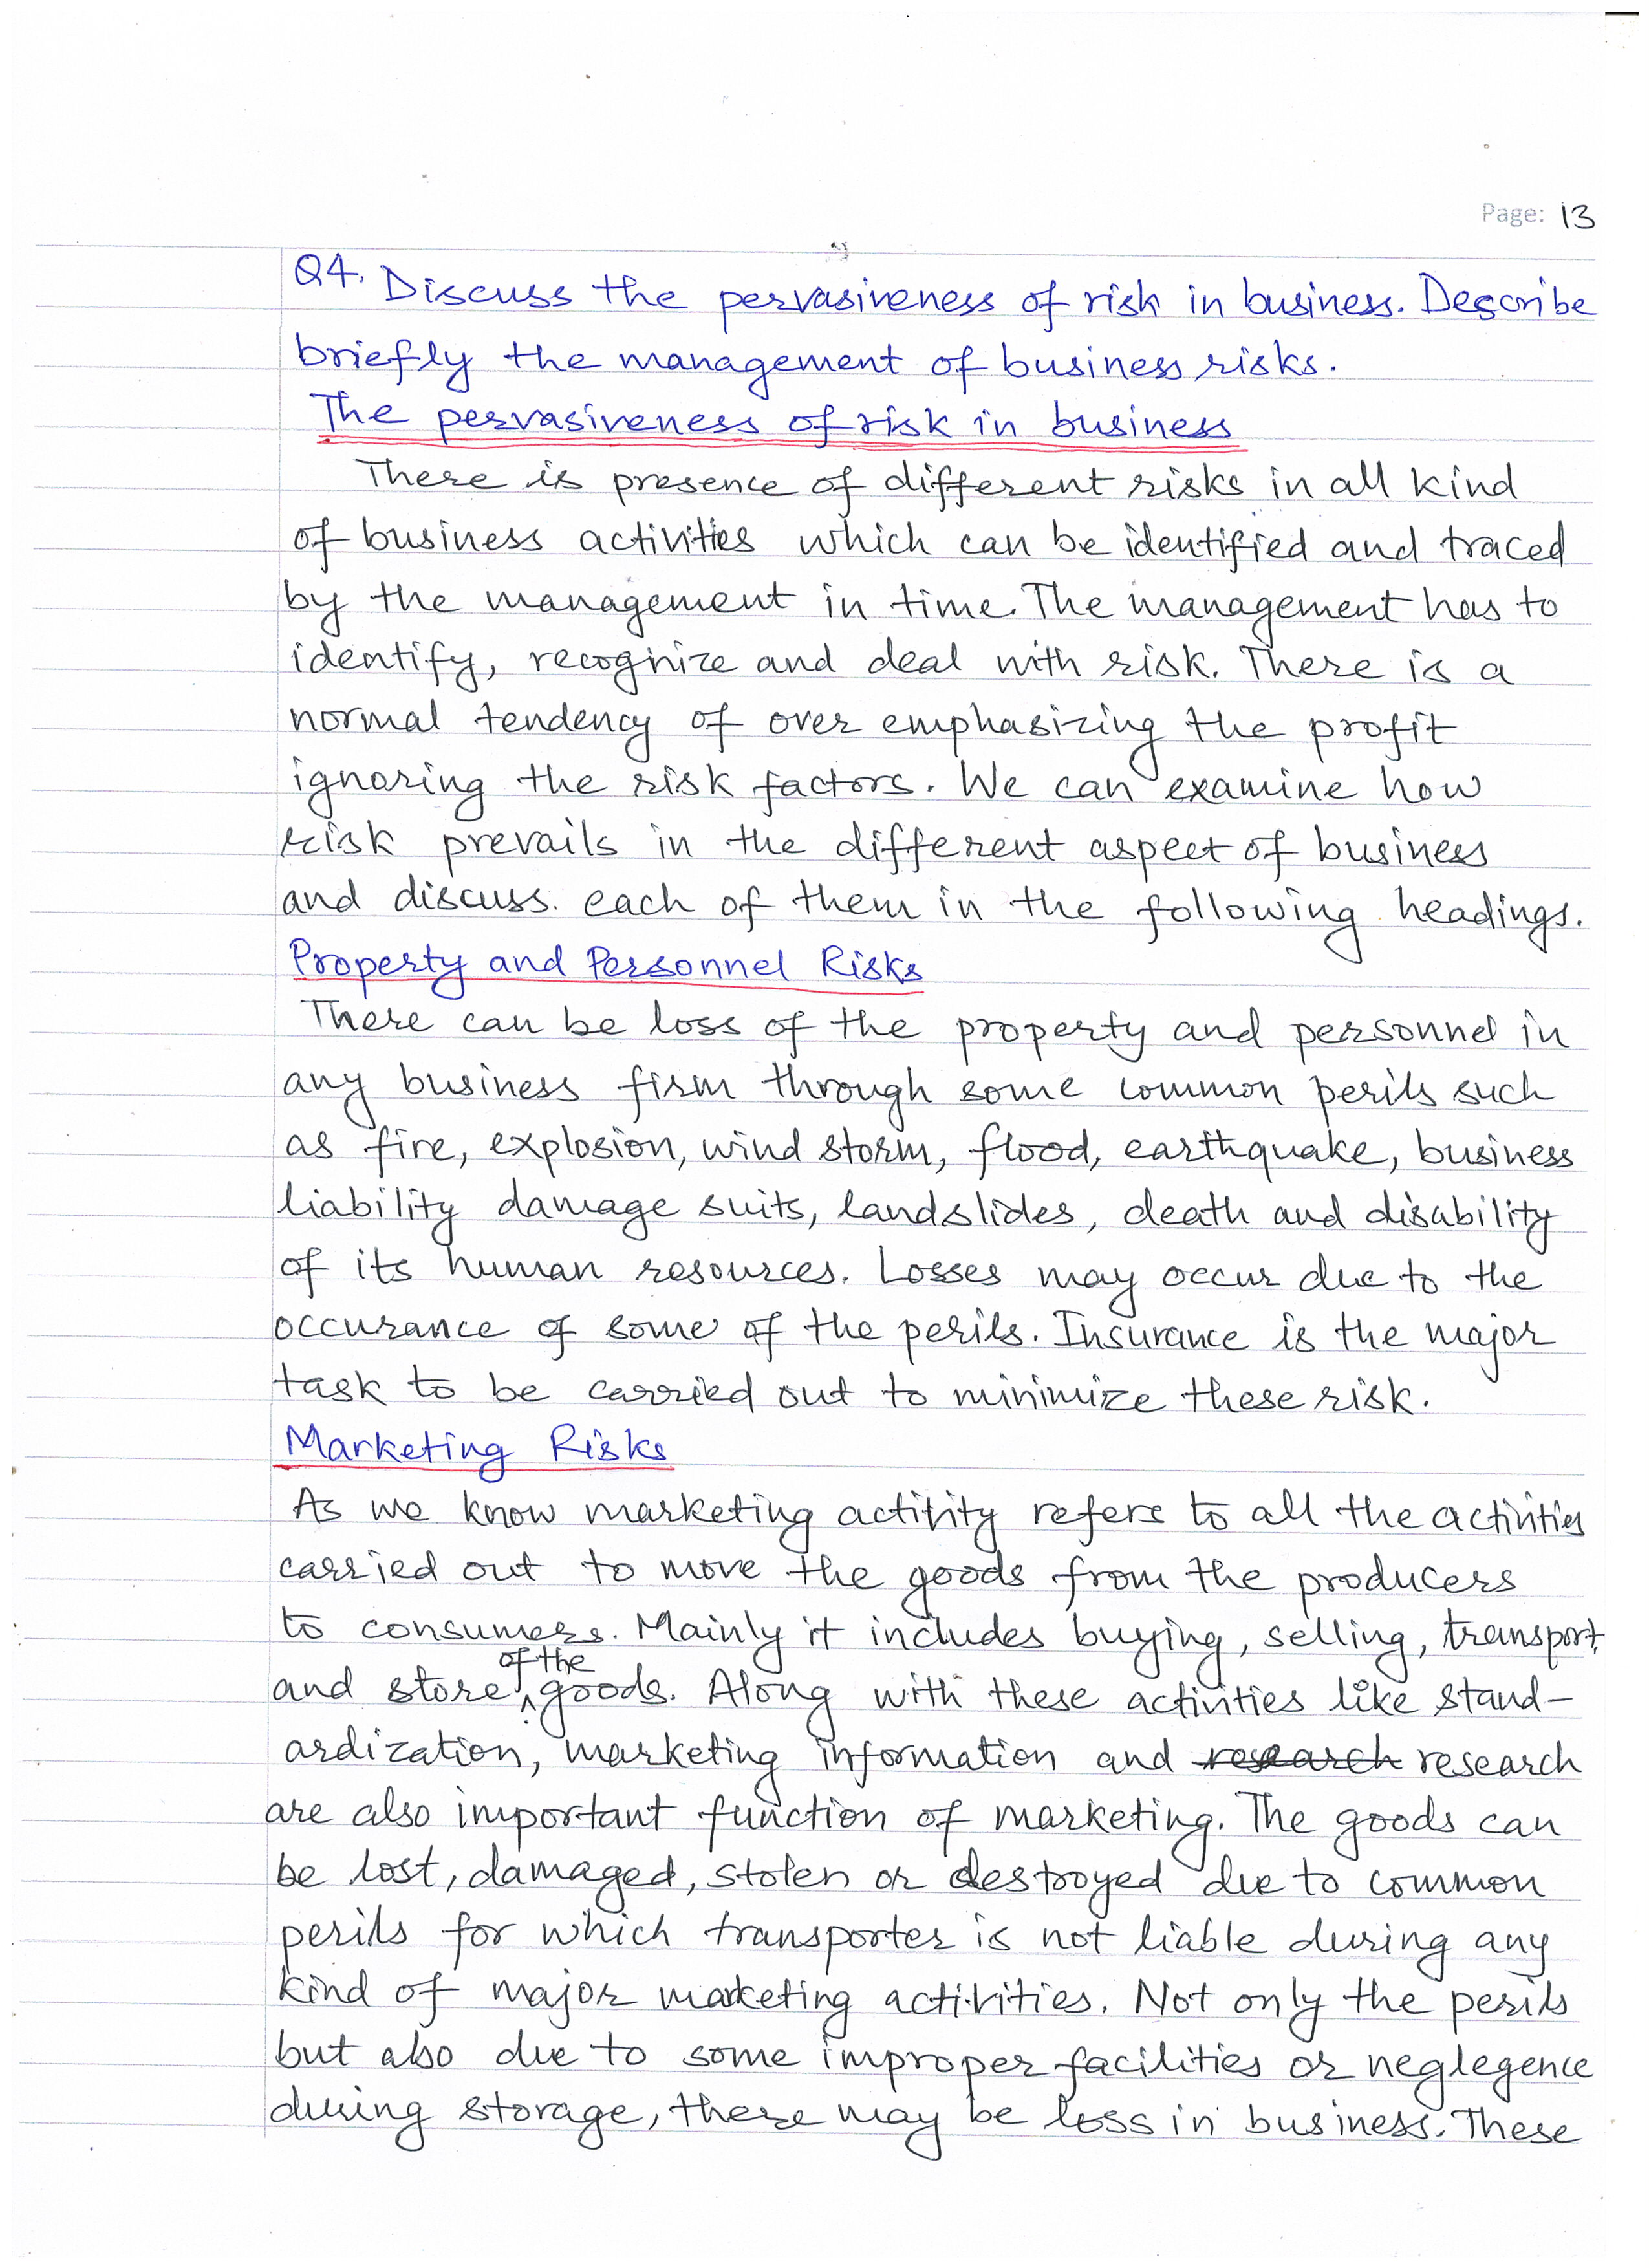 Page: 13
Q4. Discuss the pervasiveness of risk in business. Describe
briefly the management of business risks.
The pervasiveness of risk in business
There is presence of different risks in all kind
of business activities which can be identified and traced
by the management in time. The management has to
identify, recognize and deal with risk. There is a
normal tendency of over emphasizing the profit
ignoring the risk factors. We can examine how
risk prevails in the different aspect of business
and discuss. each of them in the following headings.
Property and Personnel Risks
There can be loss of the property and personnel in
any business firm through some common perils such
as fire, explosion, wind storm, flood, earthquake, business
liability damage suits, landslides, death and disability
of its human resources. Losses may occur due to the
occurance of some of the perils. Insurance is the major
task to be carried out to minimize these risk.
Marketing Risks
As we know marketing activity refers to all the activities
carried out to move the goods from the producers
to consumers. Mainly it includes buying, selling, transport,
and store of the goods. Along with these activities like stand-
ardization, marketing information and research research
are also important function of marketing. The goods can
be lost, damaged, stolen or destroyed due to common
perils for which transporter is not liable during any
kind of major marketing activities. Not only the perils
but also due to some improper facilities or neglegence
during storage, there may be loss in business. These